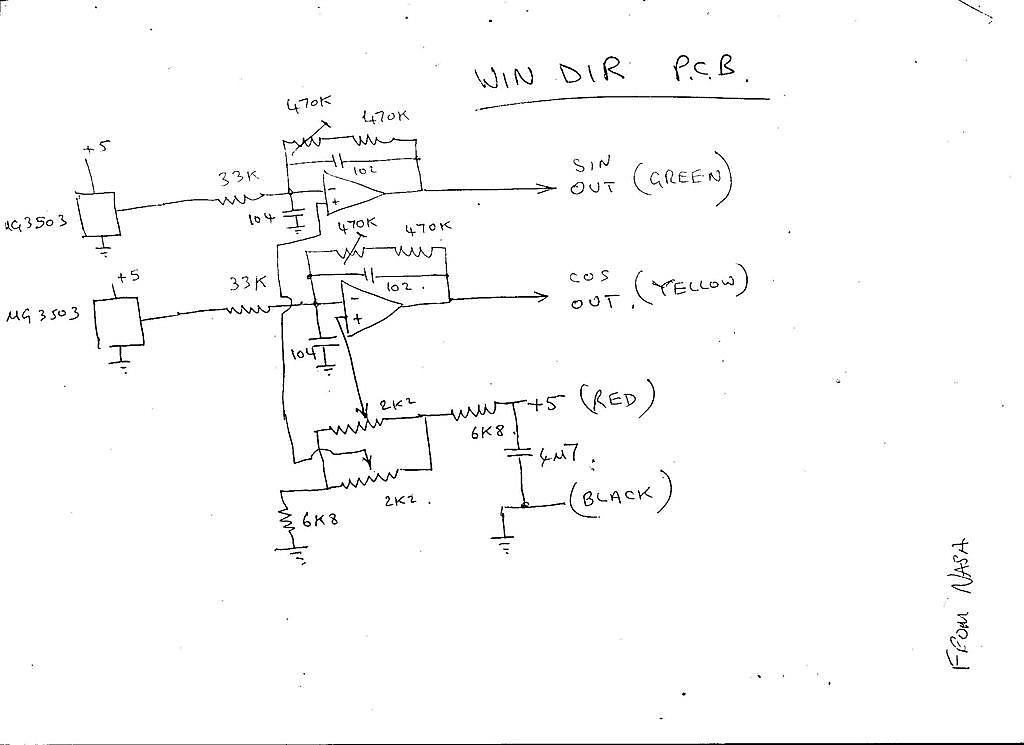 WIN DIR P.C.B.
470K
470K
+5
33K
102
SIN
OUT (GREEN)
UG3503
104
470K
470K
+5
33K
102.
COS
OUT. (YELLOW)
UG3503
104
2K2
+5 (RED)
6K8
4M7
2K2.
(BLACK)
6K8
FROM NASA